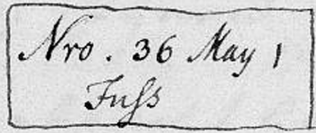 Nro. 36 May 1
Fuſs